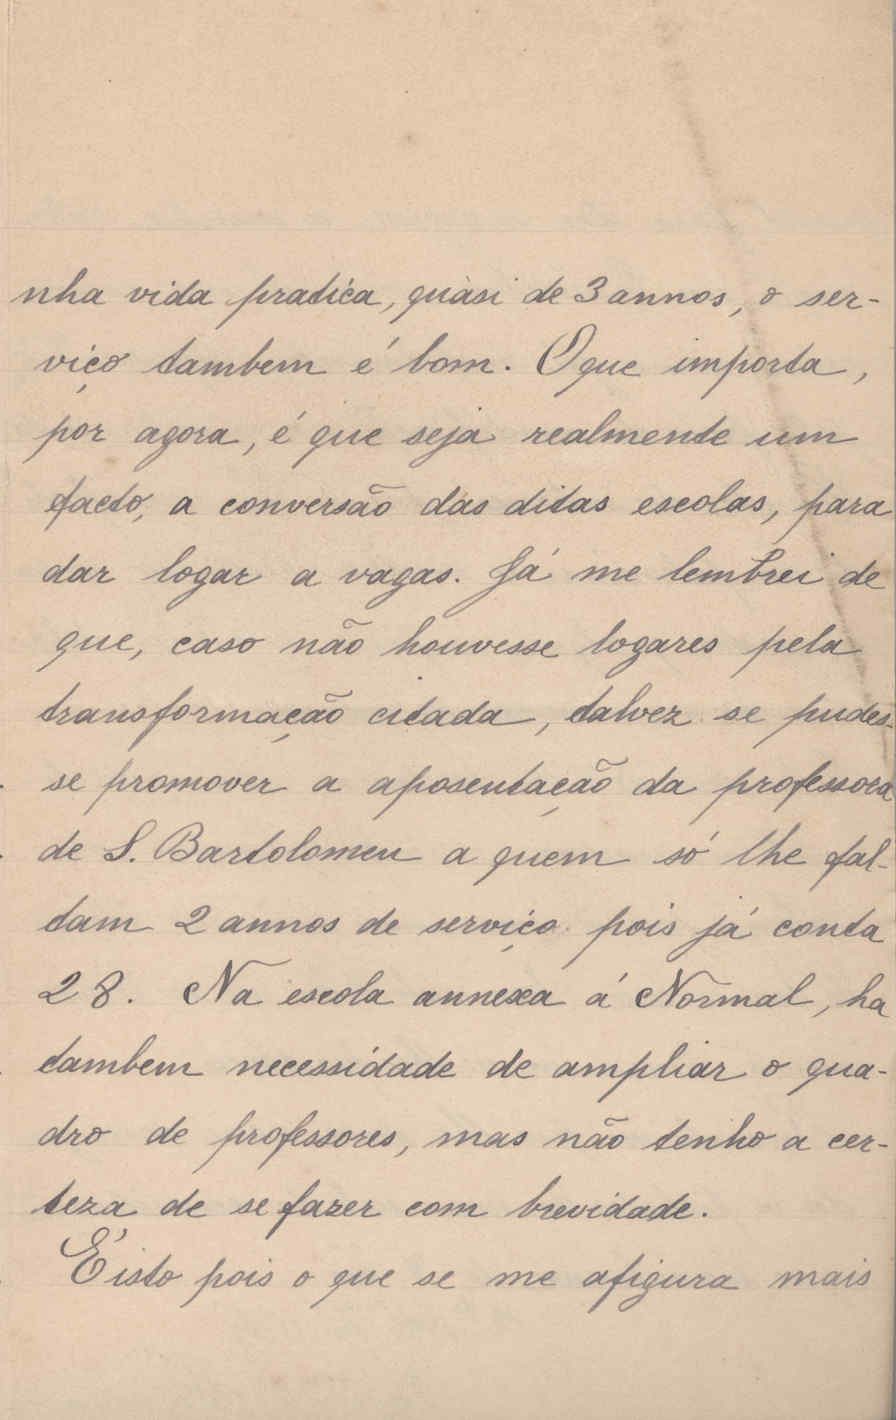 nha vida pratica, quàsi de 3 annos, o ser-
viço tambem é bom. O que importa,
por agora, é que seja realmente um
facto, a conversão das ditas escolas, para
dar logar a vagas. Já me lembrei de
que, caso não houvesse logares pela
transformação citada, talvez se pudes-
se promover a aposentação da professora
de S. Bartolomeu a quem só lhe fal-
tam 2 annos de serviço pois já conta
28. Na escola annexa á Normal, ha
tambem necessidade de ampliar o qua-
dro de professores, mas não tenho a cer-
teza de se fazer com brevidade.
É isto pois o que se me afigura mais